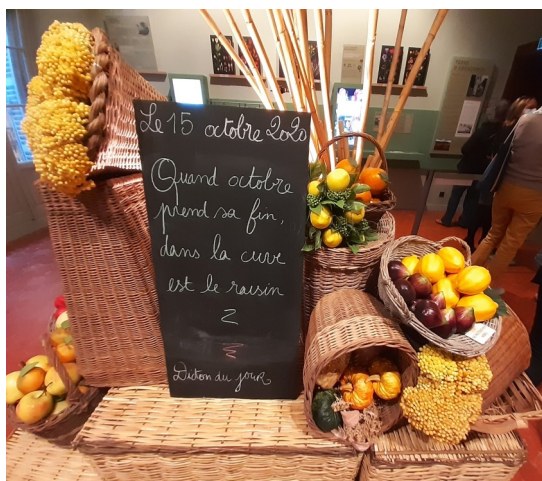 Le 15 octobre 2020
Quand octobre
prend sa fin,
dans la cuve
est le raisin
Dicton du jour